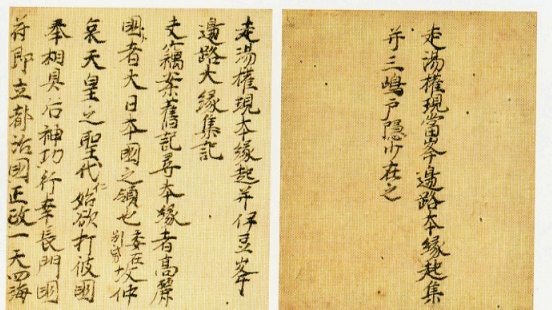 走湯權現當峯邊路本緣起集
并三嶋戸隱少在之
走湯權現本緣起并伊豆峯
邊路大緣集記
夫竊案舊記尋本緣者高麗
國者大日本國之領也委在別帋故仲
哀天皇之聖代仁始欲打彼國
奉相具后神功行幸長門國
荷即立都治國正政一天四海